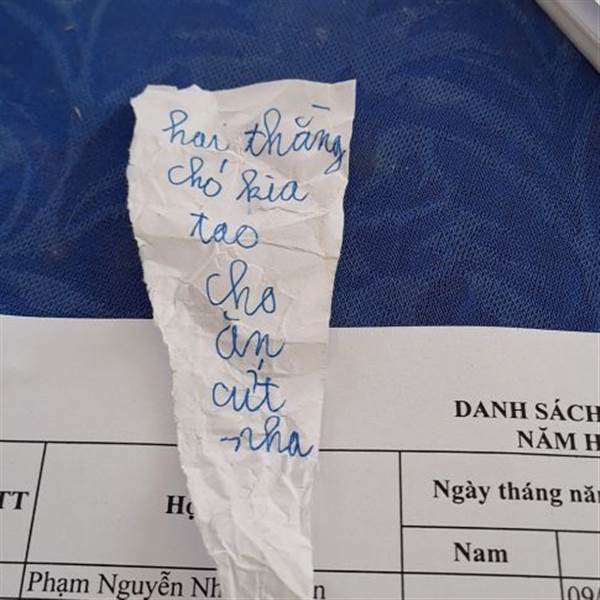 hai thằng
chó kia
tao
cho
ăn
cứt
nha
DANH SÁCH
NĂM H
TT
Họ
Ngày tháng năm
Nam
Phạm Nguyễn Nh
09/